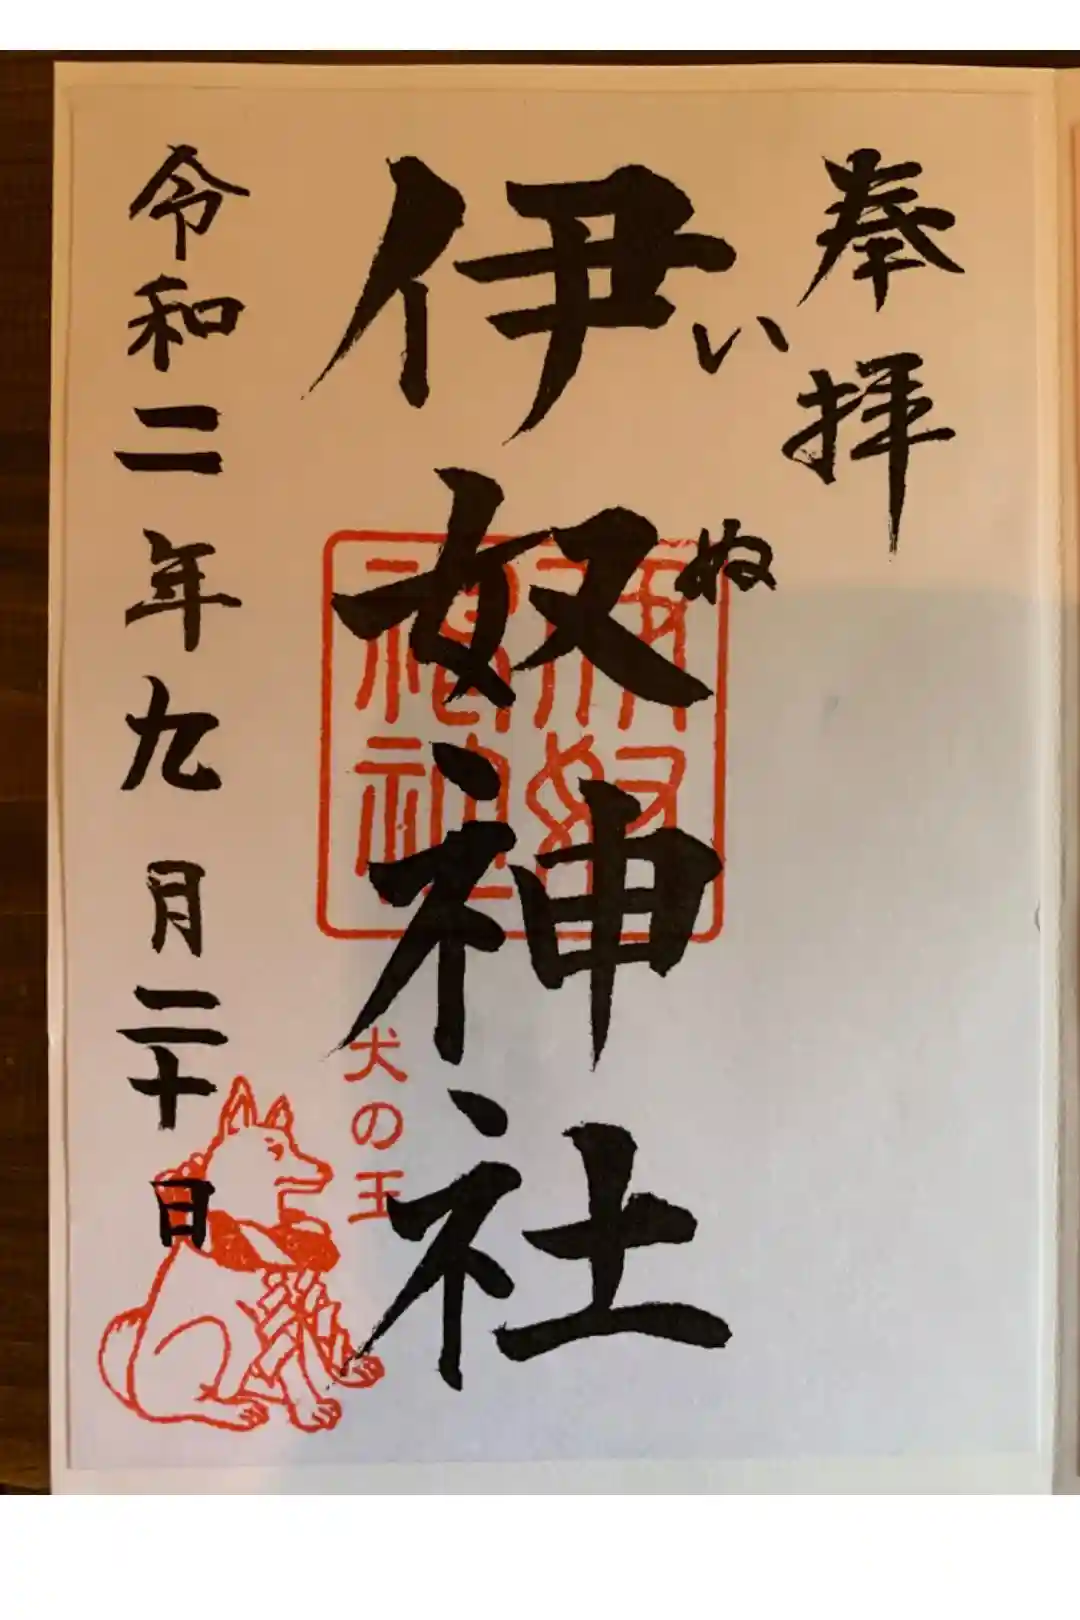 奉拝
伊奴神社
いぬ
伊奴神社
犬の王
令和二年九月二十日